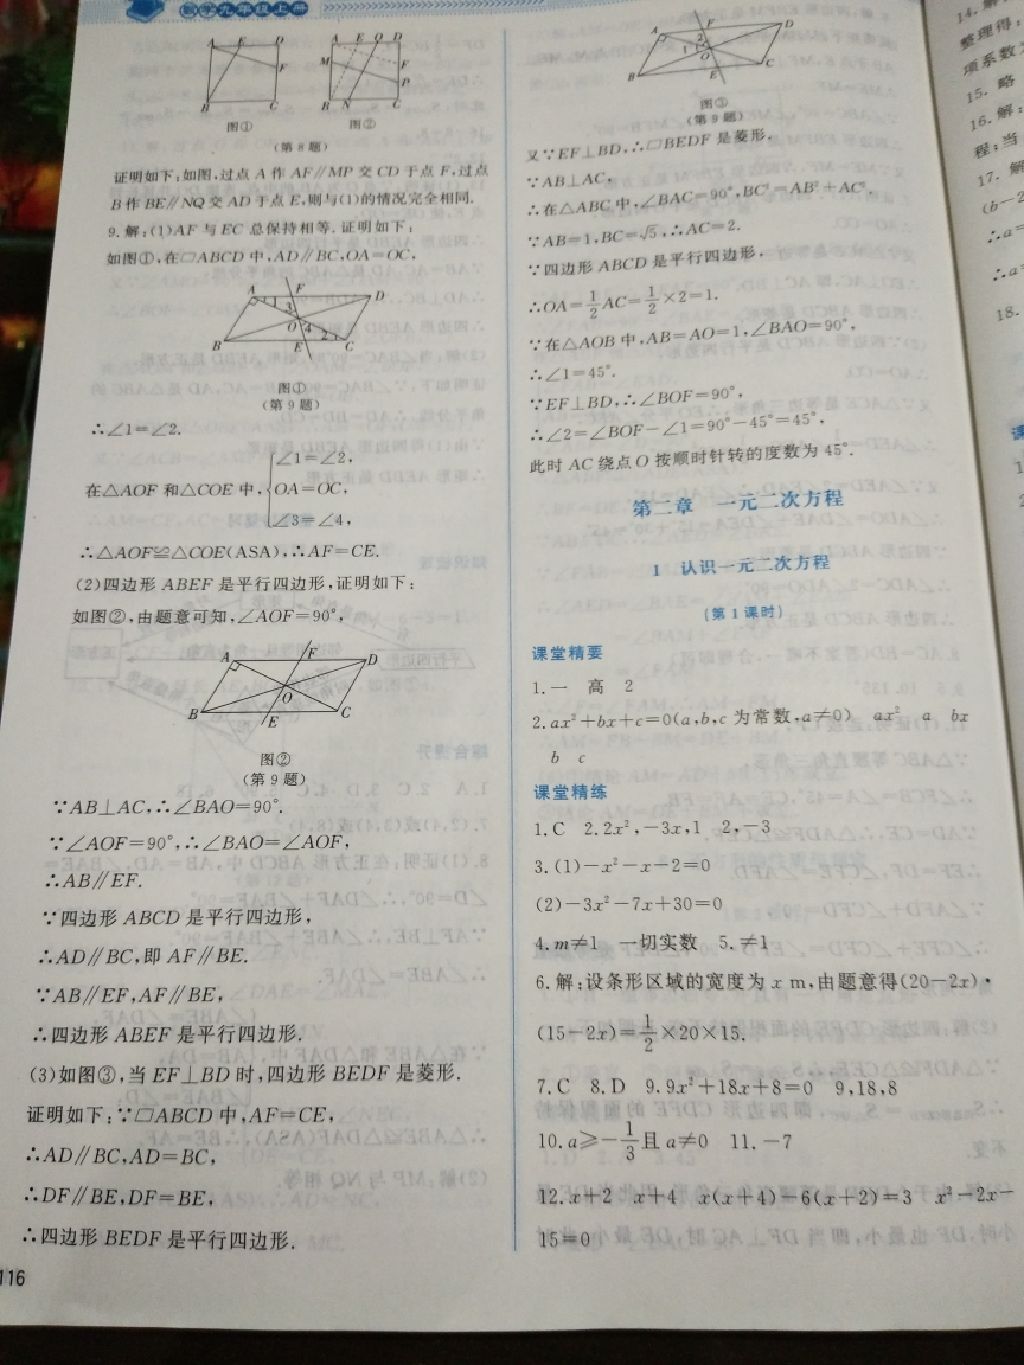 数学九年级上册
A E D
F
B C
图①
A E Q D
M F
P
B N C
图②
(第8题)
证明如下:如图,过点 A 作 AF∥MP 交 CD 于点 F,过点
B 作 BE∥NQ 交 AD 于点 E,则与(1)的情况完全相同.
9.解:(1)AF 与 EC 总保持相等.证明如下:
如图①,在▱ABCD 中,AD∥BC,OA=OC,
A F D
1 3
O 4
2
B E C
图①
(第9题)
∴∠1=∠2.
在△AOF 和△COE 中,{∠1=∠2,
OA=OC,
∠3=∠4,
∴△AOF≌△COE(ASA),∴AF=CE.
(2)四边形 ABEF 是平行四边形,证明如下:
如图②,由题意可知,∠AOF=90°,
A F D
O
B E C
图②
(第9题)
∵AB⊥AC,∴∠BAO=90°.
∵∠AOF=90°,∴∠BAO=∠AOF,
∴AB∥EF.
∵四边形 ABCD 是平行四边形,
∴AD∥BC,即 AF∥BE.
∵AB∥EF,AF∥BE,
∴四边形 ABEF 是平行四边形.
(3)如图③,当 EF⊥BD 时,四边形 BEDF 是菱形.
证明如下:∵▱ABCD 中,AF=CE,
∴AD∥BC,AD=BC,
∴DF∥BE,DF=BE,
∴四边形 BEDF 是平行四边形.
116
A F D
2
1
O
B E C
图③
(第9题)
又∵EF⊥BD,∴▱BEDF 是菱形,
∵AB⊥AC,
∴在△ABC 中,∠BAC=90°,BC²=AB²+AC²,
∵AB=1,BC=√5,∴AC=2.
∵四边形 ABCD 是平行四边形,
∴OA=1/2AC=1/2×2=1.
∵在△AOB 中,AB=AO=1,∠BAO=90°,
∴∠1=45°.
∵EF⊥BD,∴∠BOF=90°,
∴∠2=∠BOF-∠1=90°-45°=45°,
此时 AC 绕点 O 按顺时针转的度数为 45°.
第二章 一元二次方程
1 认识一元二次方程
(第1课时)
课堂精要
1.一 高 2
2.ax²+bx+c=0(a,b,c 为常数,a≠0) ax² a bx
b c
课堂精练
1.C 2.2x²,-3x,1 2,-3
3.(1)-x²-x-2=0
(2)-3x²-7x+30=0
4.m≠1 一切实数 5.≠1
6.解:设条形区域的宽度为 x m,由题意得(20-2x)·
(15-2x)=1/2×20×15.
7.C 8.D 9.9x²+18x+8=0 9,18,8
10.a≥-1/3且 a≠0 11.-7
12.x+2 x+4 x(x+4)-6(x+2)=3 x²-2x-
15=0
14.解
整理得:
项系数
15.略
16.解:
程;当
17.解
(b-2
∴a=
∴a=
18.